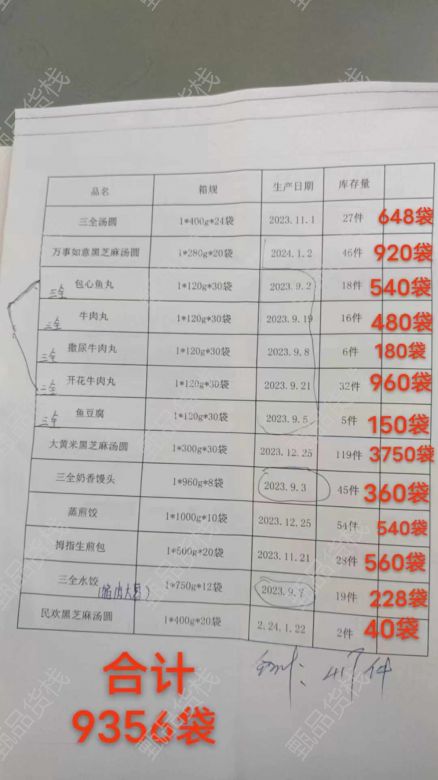 品名 箱规 生产日期 库存量
三全汤圆 1*400g*24袋 2023.11.1 27件 648袋
万事如意黑芝麻汤圆 1*280g*20袋 2024.1.2 46件 920袋
三全 包心鱼丸 1*120g*30袋 2023.9.2 18件 540袋
三全 牛肉丸 1*120g*30袋 2023.9.19 16件 480袋
三全 撒尿牛肉丸 1*120g*30袋 2023.9.8 6件 180袋
三全 开花牛肉丸 1*120g*30袋 2023.9.21 32件 960袋
三全 鱼豆腐 1*120g*30袋 2023.9.5 5件 150袋
大黄米黑芝麻汤圆 1*300g*30袋 2023.12.25 119件 3750袋
三全奶香馒头 1*960g*8袋 2023.9.3 45件 360袋
蒸煎饺 1*1000g*10袋 2023.12.25 54件 540袋
拇指生煎包 1*500g*20袋 2023.11.21 28件 560袋
三全水饺 1*750g*12袋 2023.9.7 19件 228袋
民欢黑芝麻汤圆 1*400g*20袋 2.24.1.22 2件 40袋
合计
9356袋
甄品货栈